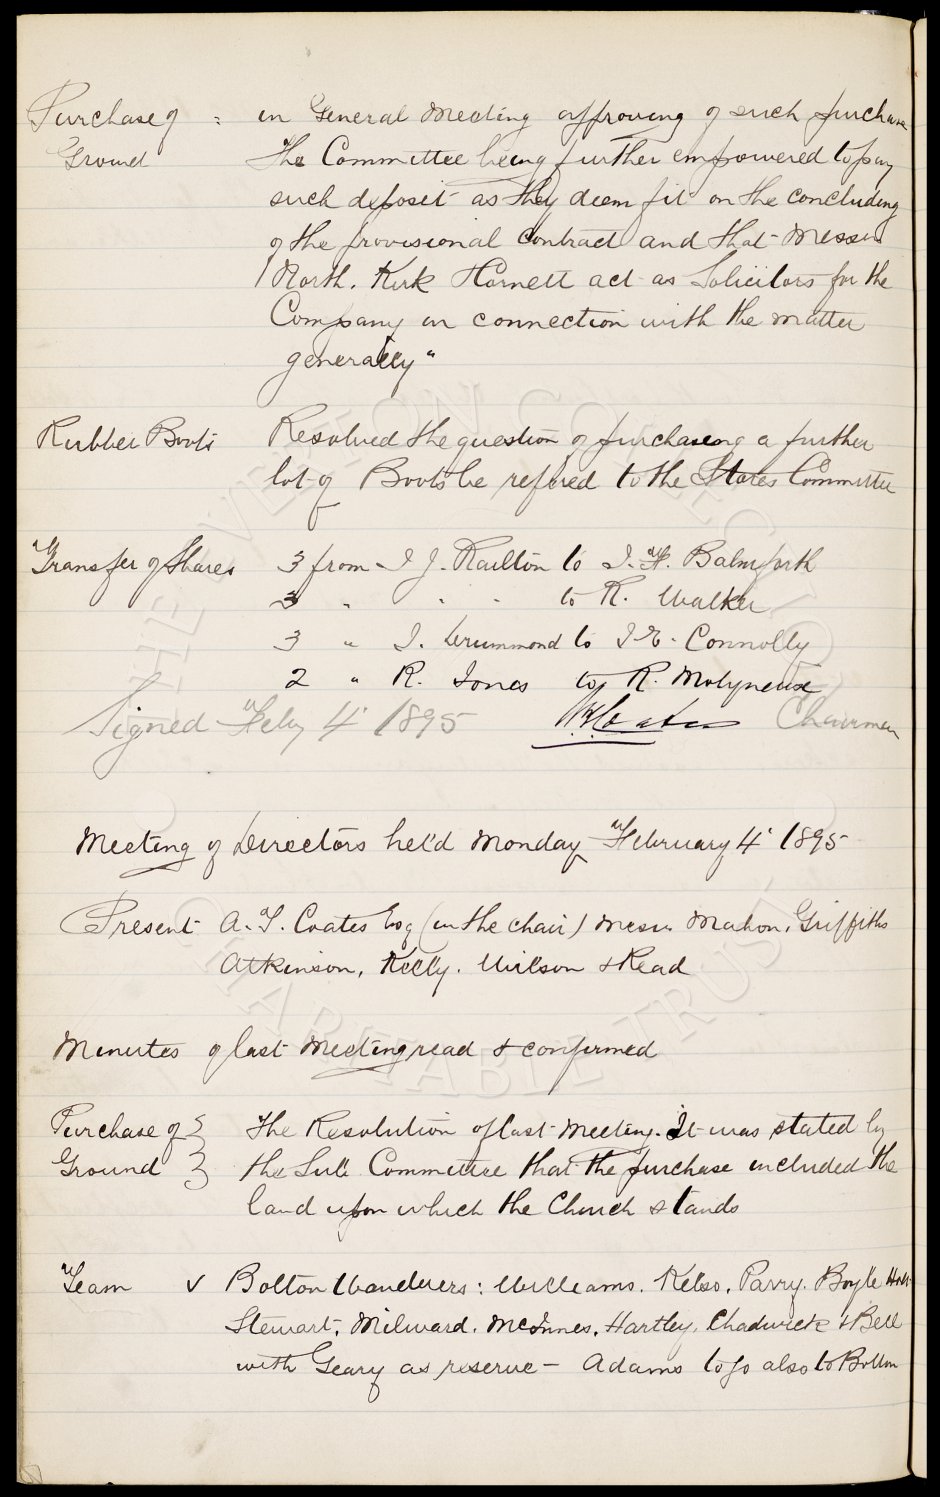 Purchase of = in General Meeting approving of such purchase
Ground the Committee being further empowered to pay
such deposit as they deem fit on the concluding
of the provisional Contract and that Messrs
North, Kirk & Cornett act as Solicitors for the
Company in connection with the matter
generally"
Rubber Boots Resolved the question of purchasing a further
lot of Boots be refered to the Stores Committee
Transfer of Shares 3 from J J. Railton to J. H. Balmforth
3 " " " to R. Walker
3 " J. Drummond to J E. Connolly
2 " R. Jones to R. Molyneux
Signed Feby 4" 1895 Coates Chairman
Meeting of Directors held Monday February 4" 1895
Present A. T. Coates Esq (in the chair) Messrs Mahon, Griffiths
Atkinson, Kelly, Wilson & Read
Minutes of last Meeting read & confirmed
Purchase of } The Resolution of last Meeting. It was stated by
Ground } the Sub Committee that the purchase included the
land upon which the Church stands
Team v Bolton Wanderers: Williams, Kelso, Parry, Boyle Holt
Stewart, Milward, McInnes, Hartley, Chadwick & Bell
with Geary as reserve - Adams to go also to Bolton
THE EVERTON COLLECTION
CHARITABLE TRUST